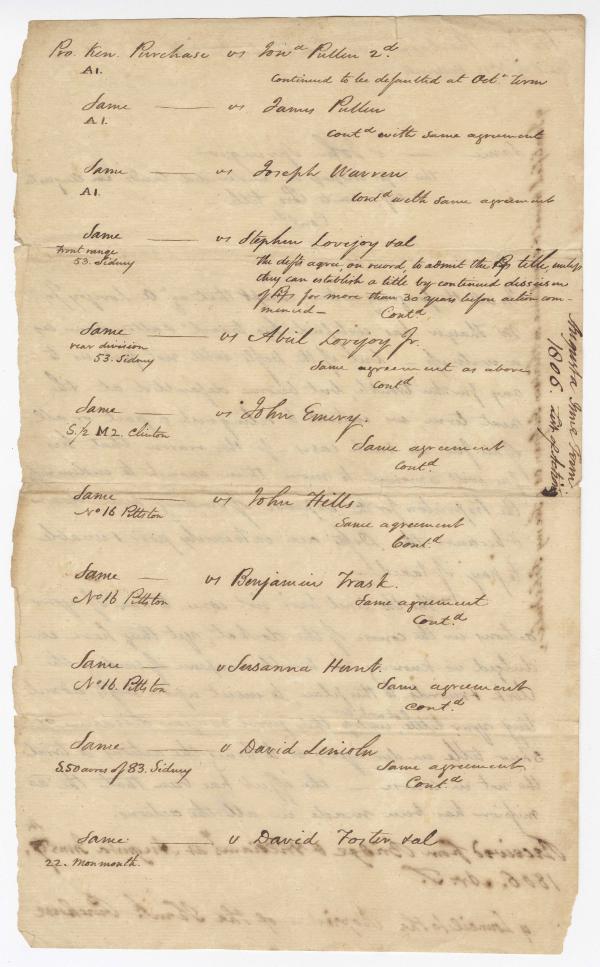 Pro. Ken. Purchase vs Jon.d Pullen 2.d
A1.
continued to be defaulted at Oct.r term
Same —— vs James Pullen
A1.
cont.d with same agreement
Same —— vs Joseph Warren
A1.
Cont.d with same agreement
Same —— vs Stephen Lovejoy & al
front range
53. Sidney
the defts agree, on record, to admit the title, unless
they can establish a title by continued disseisin
of for more than 30 years before action com-
menced — Cont.d
Same —— vs Abiel Lovejoy Jr.
rear division
53. Sidney
Same agreement as above
Cont.d
Same —— vs John Emery.
S. 1/2 M2. Clinton
Same agreement
Cont.d
Same —— vs John Hills
No 16 Pittston
same agreement
Cont.d
Same —— vs Benjamin Trask.
No 16 Pittston
Same agreement
Cont.d
Same —— v Susanna Hunt.
No 16. Pittston
Same agreement
Cont.d
Same —— v David Lincoln
550 acres of 83. Sidney
Same agreement
Cont.d
Same —— v David Foster & al
22. Monmouth.
Augusta June Term
1806. List of Actions